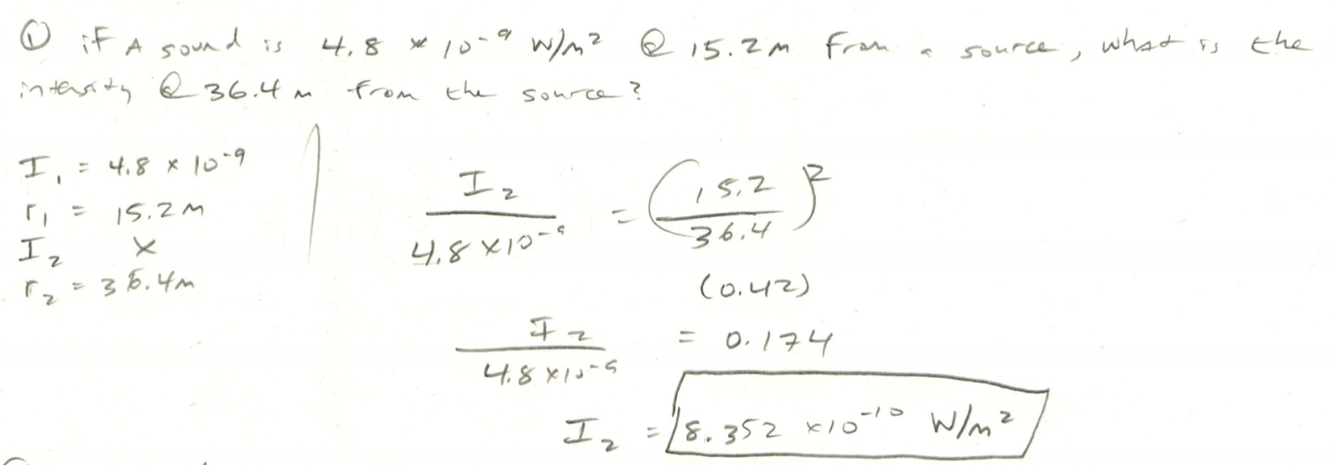 ① if A sound is 4.8 × 10⁻⁹ W/m² @ 15.2m from a source, what is the
intensity @ 36.4 m from the source?
I₁ = 4.8 × 10⁻⁹
r₁ = 15.2m
I₂ x
r₂ = 36.4m
I₂ / 4.8 ×10⁻⁹ = (15.2 / 36.4)²
(0.42)
I₂ / 4.8 ×10⁻⁹ = 0.174
I₂ = 8.352 ×10⁻¹⁰ W/m²